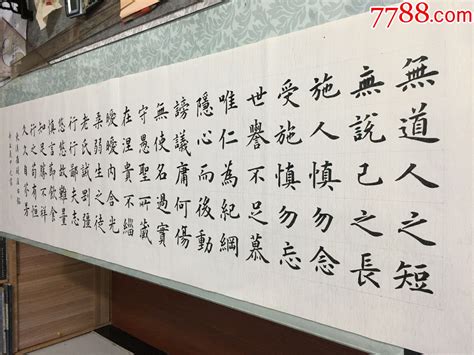 7788.com
無道人之短
無說己之長
施人慎勿念
受施慎勿忘
世譽不足慕
唯仁為紀綱
隱心而後動
謗議庸何傷
無使名過實
守愚聖所臧
在涅貴不緇
曖曖內含光
柔弱生之徒
老氏誡剛強
行行鄙夫志
悠悠故難量
慎言節飲食
知足勝不祥
行之苟有恒
久久自芬芳